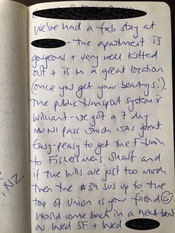 We've had a fab stay at
- the apartment is
gorgeous + very well kitted
out + is in a great location
(once you get your bearings!)
The public transport system is
brilliant - we got a 7 day
MUNI pass which was great
Easy peasy to get the F
to Fisherman's Wharf and
if the hills are just too much
then the #39 bus up to the
top of Union is your friend ☺
Would come back in a heart beat
as loved SF + loved
NZ